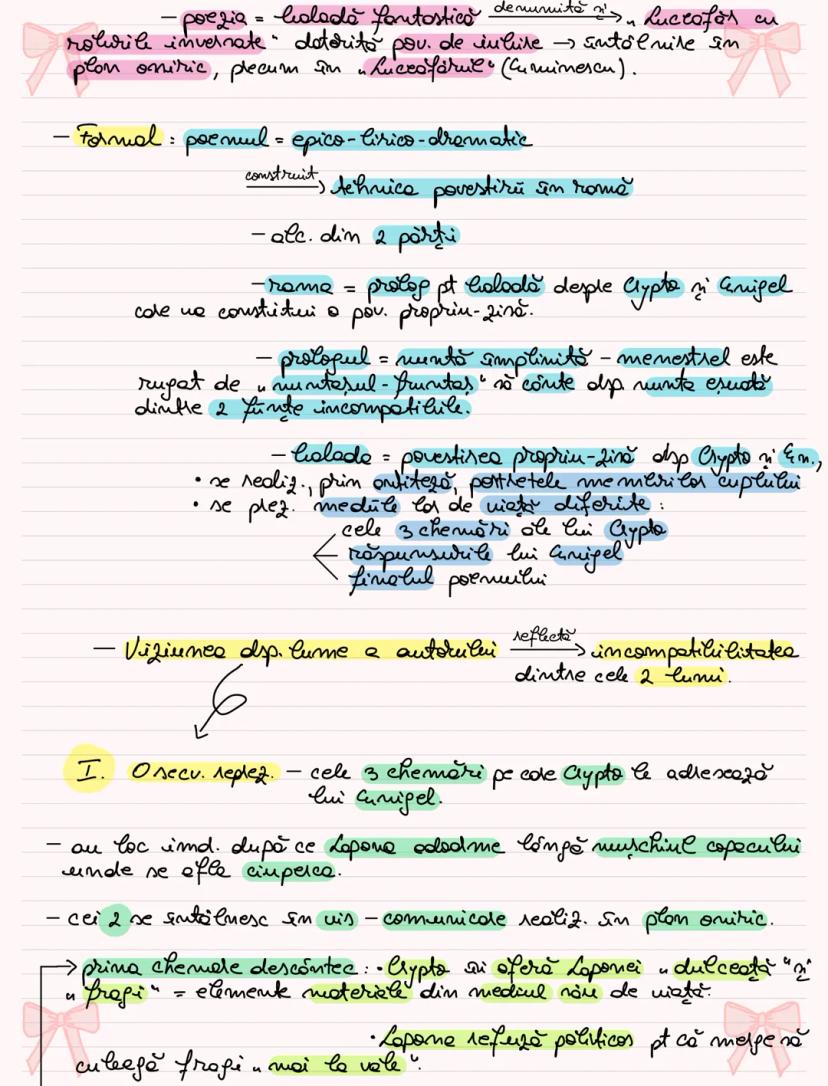 - poezia = baladă fantastică denumită și → „Luceafăr cu
rolurile inversate" datorită pov. de iubire → întâlnire în
plan oniric, precum în „Luceafărul" (Eminescu).
- Formal : poemul = epico-lirico-dramatic
construit → tehnica povestirii în ramă
- alc. din 2 părți
- rama = prolog pt baladă despre Crypto și Enigel
care va constitui o pov. propriu-zisă.
- prologul = nuntă împlinită - menestrel este
rugat de „nuntașul-fruntaș" să cânte dsp nunta eșuată
dintre 2 ființe incompatibile.
- balada = povestirea propriu-zisă dsp Crypto și En.,
• se realiz., prin antiteză, portretele membrilor cuplului
• se prez. mediile lor de viață diferite :
cele 3 chemări ale lui Crypto
răspunsurile lui Enigel
finalul poemului
- Viziunea dsp. lume a autorului reflectă → incompatibilitatea
dintre cele 2 lumi.
I. O secv. reprez. - cele 3 chemări pe care Crypto le adresează
lui Enigel.
- au loc imd. după ce Lapona adoarme lângă mușchiul copacului
unde se afla ciuperca.
- cei 2 se întâlnesc în vis - comunicare realiz. în plan oniric.
→ prima chemare descântec : • Crypto îi oferă Laponei „dulceață" și
„fragi" = elemente materiale din mediul său de viață.
• Lapona refuză politicos pt că merge să
culeagă fragi „mai la vale".